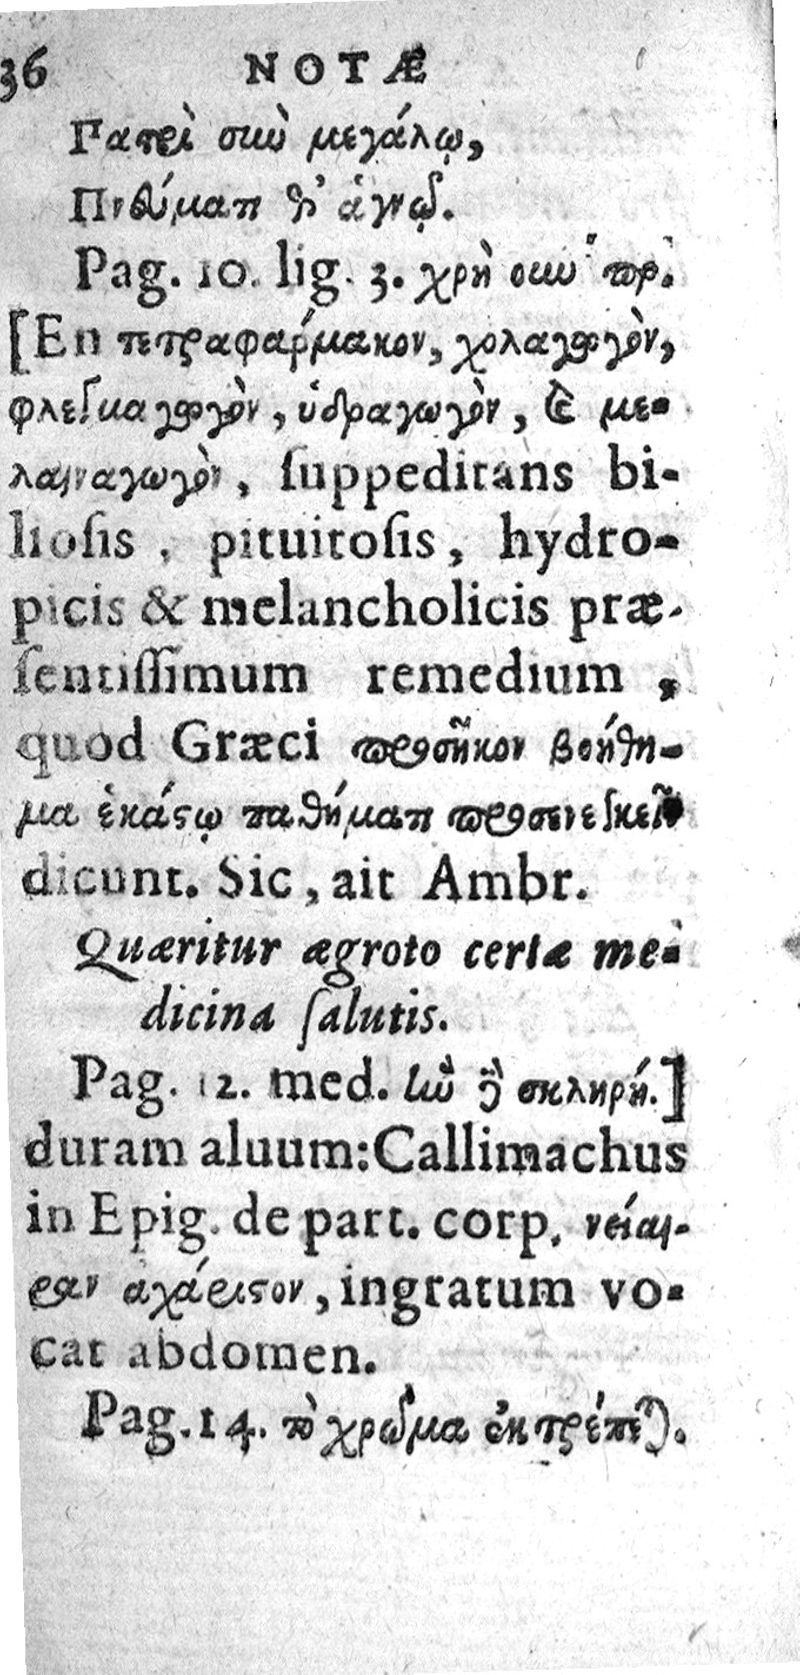 36 NOTÆ
Γατρὶ σιωὺ μεγάλῳ,
Πνθύματι θ' ἁγνῷ.
Pag. 10. lig. 3. χρὴ οιωυ πρ.
[En πετραφαρμακον, χολαγωγὸν,
φλεγμαγωγὸν, ὑδραγωγὸν, & με-
λαιναγωγὸν, ſuppeditans bi-
lioſis, pituitoſis, hydro-
picis & melancholicis præ-
ſentiſſimum remedium,
quod Græci προσῆκον βοήθη-
μα ἑκάστῳ παθήματι προσενεγκεῖν
dicunt. Sic, ait Ambr.
Quæritur ægroto certæ me-
dicina ſalutis.
Pag. 12. med. ἰὼ ἢ σκληρή.]
duram aluum: Callimachus
in Epig. de part. corp. νείαι-
ραν ἀχάριστον, ingratum vo-
cat abdomen.
Pag. 14. τὸ χρῶμα ἐκτρέπεται.